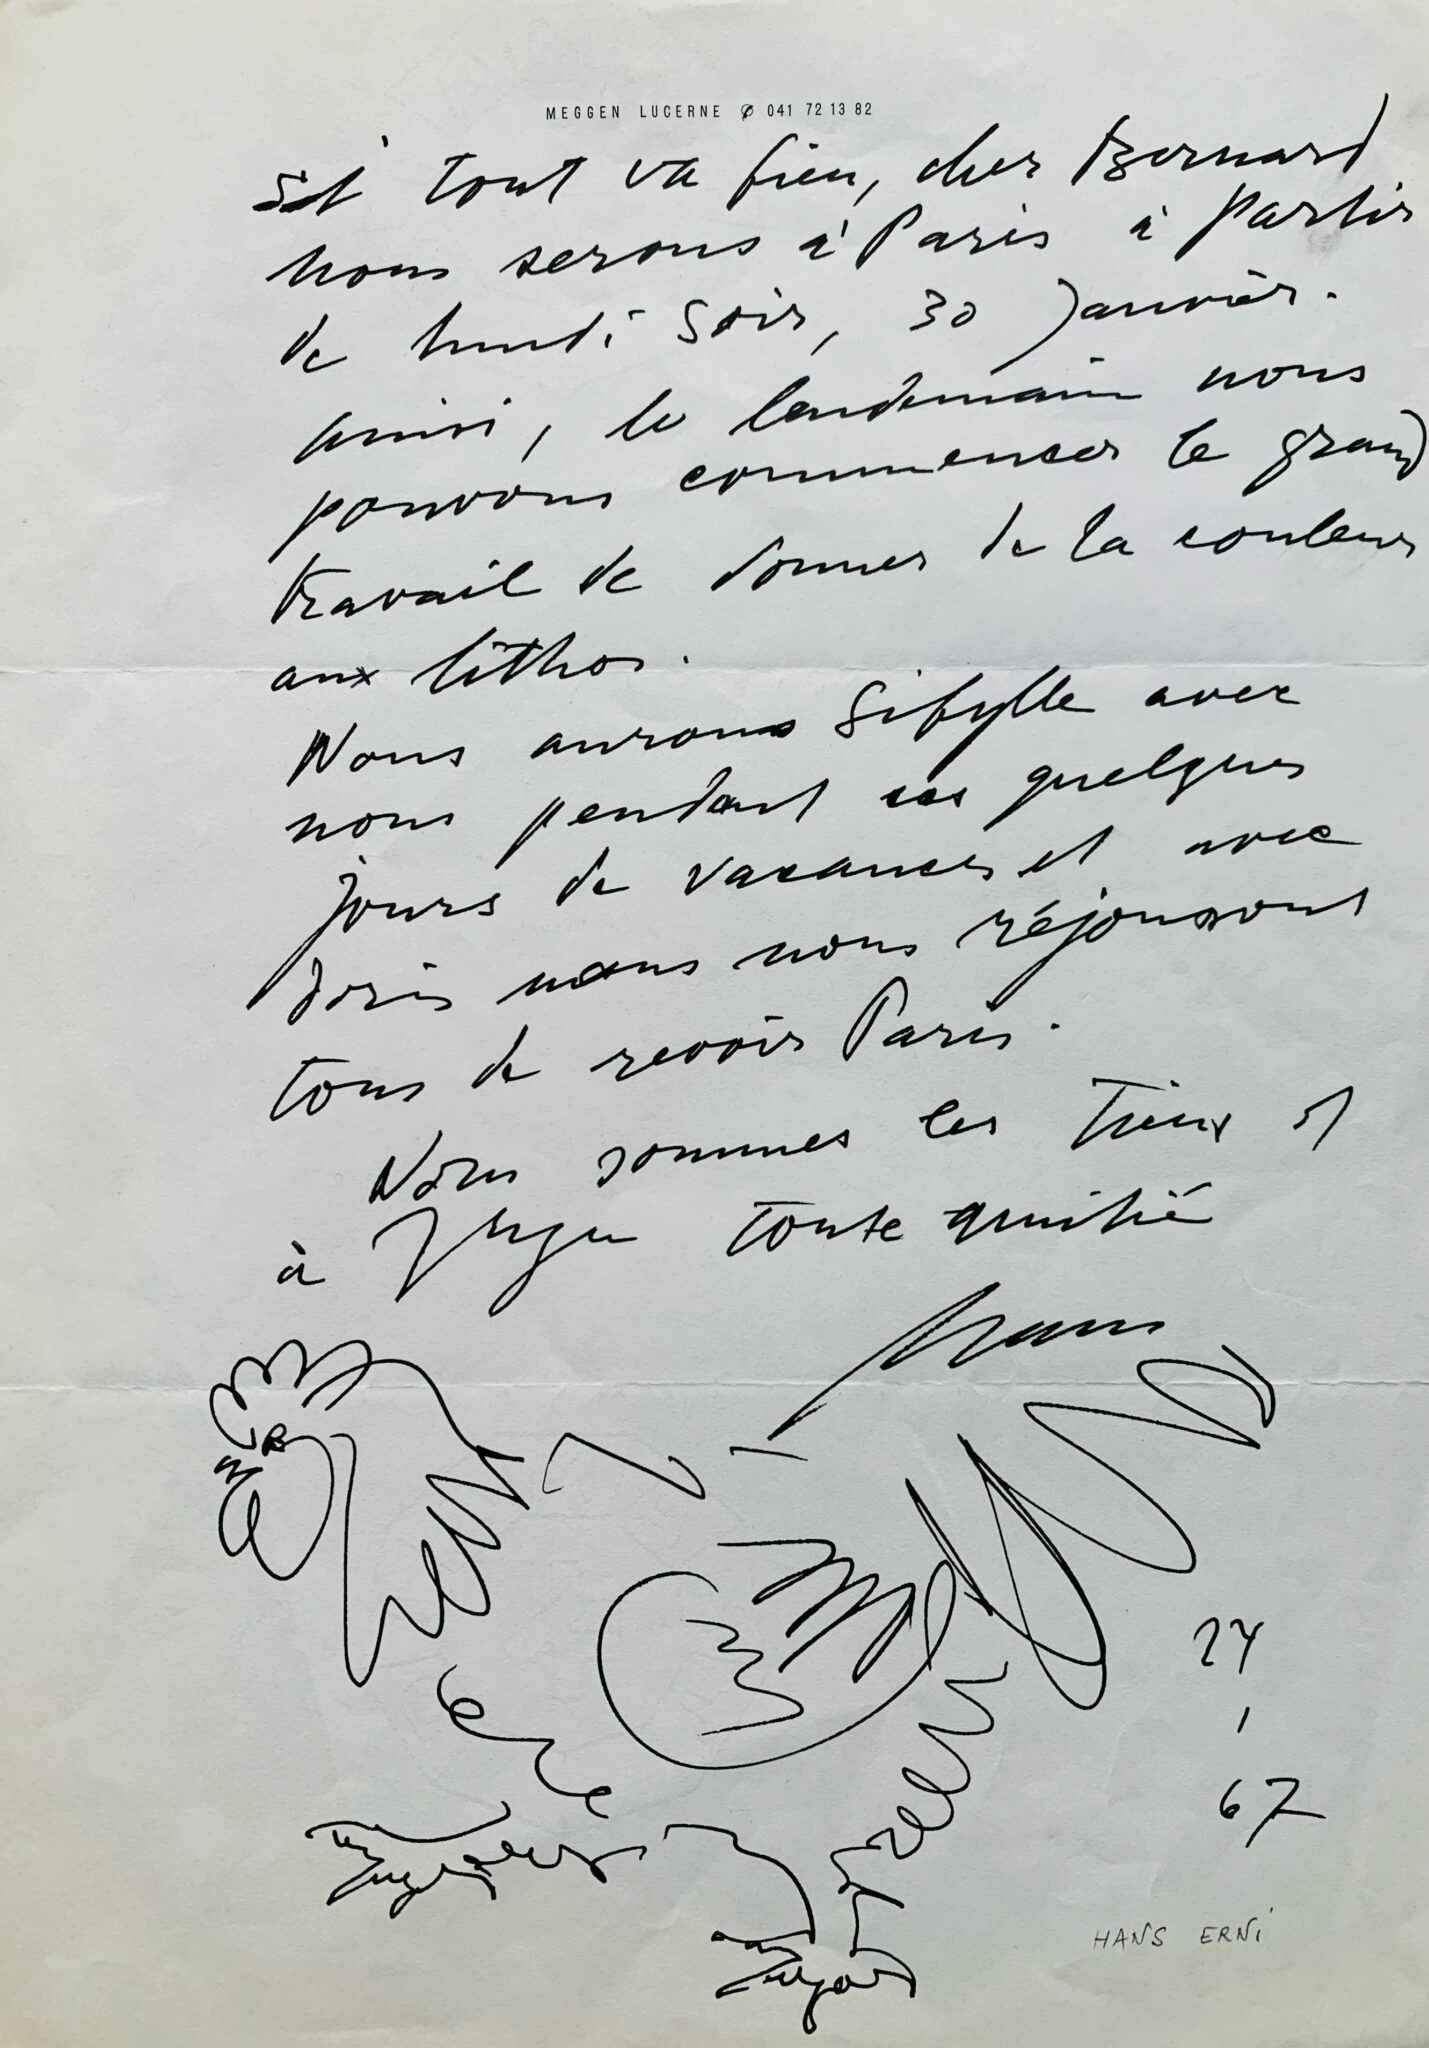 MEGGEN LUCERNE 041 72 13 82
Si tout va bien, cher Bernard
nous serons à Paris à partir
de lundi soir, 30 janvier.
Ainsi, le lendemain nous
pouvons commencer le grand
travail de donner de la couleur
aux lithos.
Nous aurons Sibylle avec
nous pendant ces quelques
jours de vacances et avec
Doris nous nous réjouissons
tous de revoir Paris.
Nous sommes les Tiens et
à toute amitié
Hans
1
67
HANS ERNI